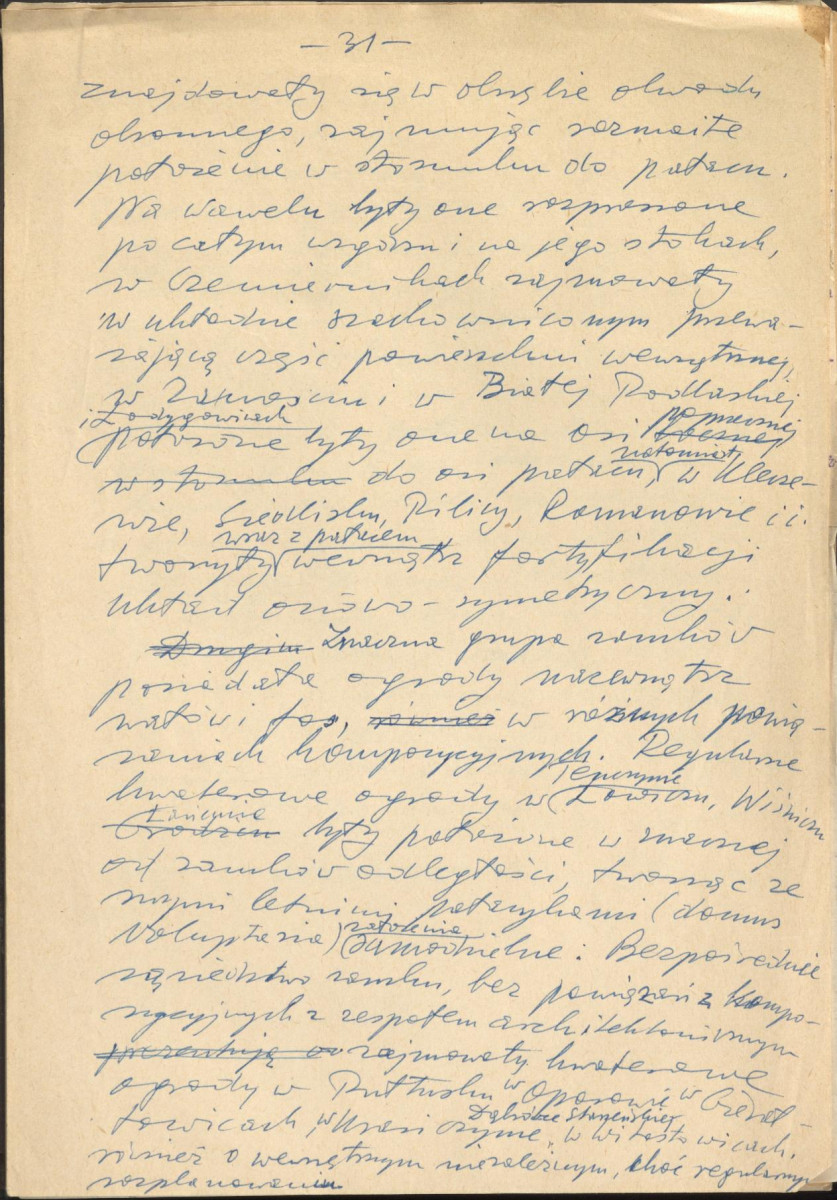 – 31 –
znajdowały się w obrębie obwodu
obronnego, zajmując rozmaite
położenie w stosunku do pałacu.
Na Wawelu były one rozproszone
po całym wzgórzu i na jego stokach,
w Czemiernikach zajmowały
w układzie szachownicowym przewa-
żającą część powierzchni wewnętrznej,
w Zamościu i w Białej Podlaskiej
i Łodygowicach
położone były one na osi bocznej poprzecznej
w stosunku do osi pałacu, natomiast w Klesze-
wie, Siedlisku, Pilicy, Romanowie i i.
wraz z pałacem
tworzyły wewnątrz fortyfikacji
układ osiowo-symetryczny.
Drugim Znaczna grupa zamków
posiadała ogrody nazewnątrz
wałów i fos, również w różnych powią-
zaniach kompozycyjnych. Regularne
kwaterowe ogrody w Łowiczu, Wiśniczu
Łańcucie
były położone w znacznej
od zamków odległości, tworząc ze
swymi letnimi pałacykami (domus
Voluptaria) założenia samodzielne. Bezpośrednie
sąsiedztwo zamku, bez powiązań kompo-
zycyjnych z zespołem architektonicznym
prezentują zajmowały kwaterowe
ogrody w Pułtusku w Oporowie w Gierał-
towicach, w Krasiczynie, w Witostowicach.
również o wewnętrznym niezależnym, choć regularnym
rozplanowaniu